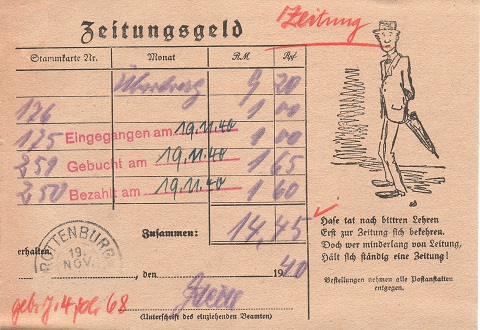 Zeitungsgeld
Zeitung
Stammkarte Nr. Monat RM Rpf
9 20
176 1 00
175 Eingegangen am 19.11.40 1 00
259 Gebucht am 19.11.40 1 65
250 Bezahlt am 19.11.40 1 60
Zusammen: 14,45
erhalten.
ROTTENBURG
19.
NOV.
, den 1940
(Unterschrift des einziehenden Beamten)
68
Hase tat nach bittren Lehren
Erst zur Zeitung sich bekehren.
Doch wer minderlang von Leitung,
Hält sich ständig eine Zeitung!
Bestellungen nehmen alle Postanstalten
entgegen.